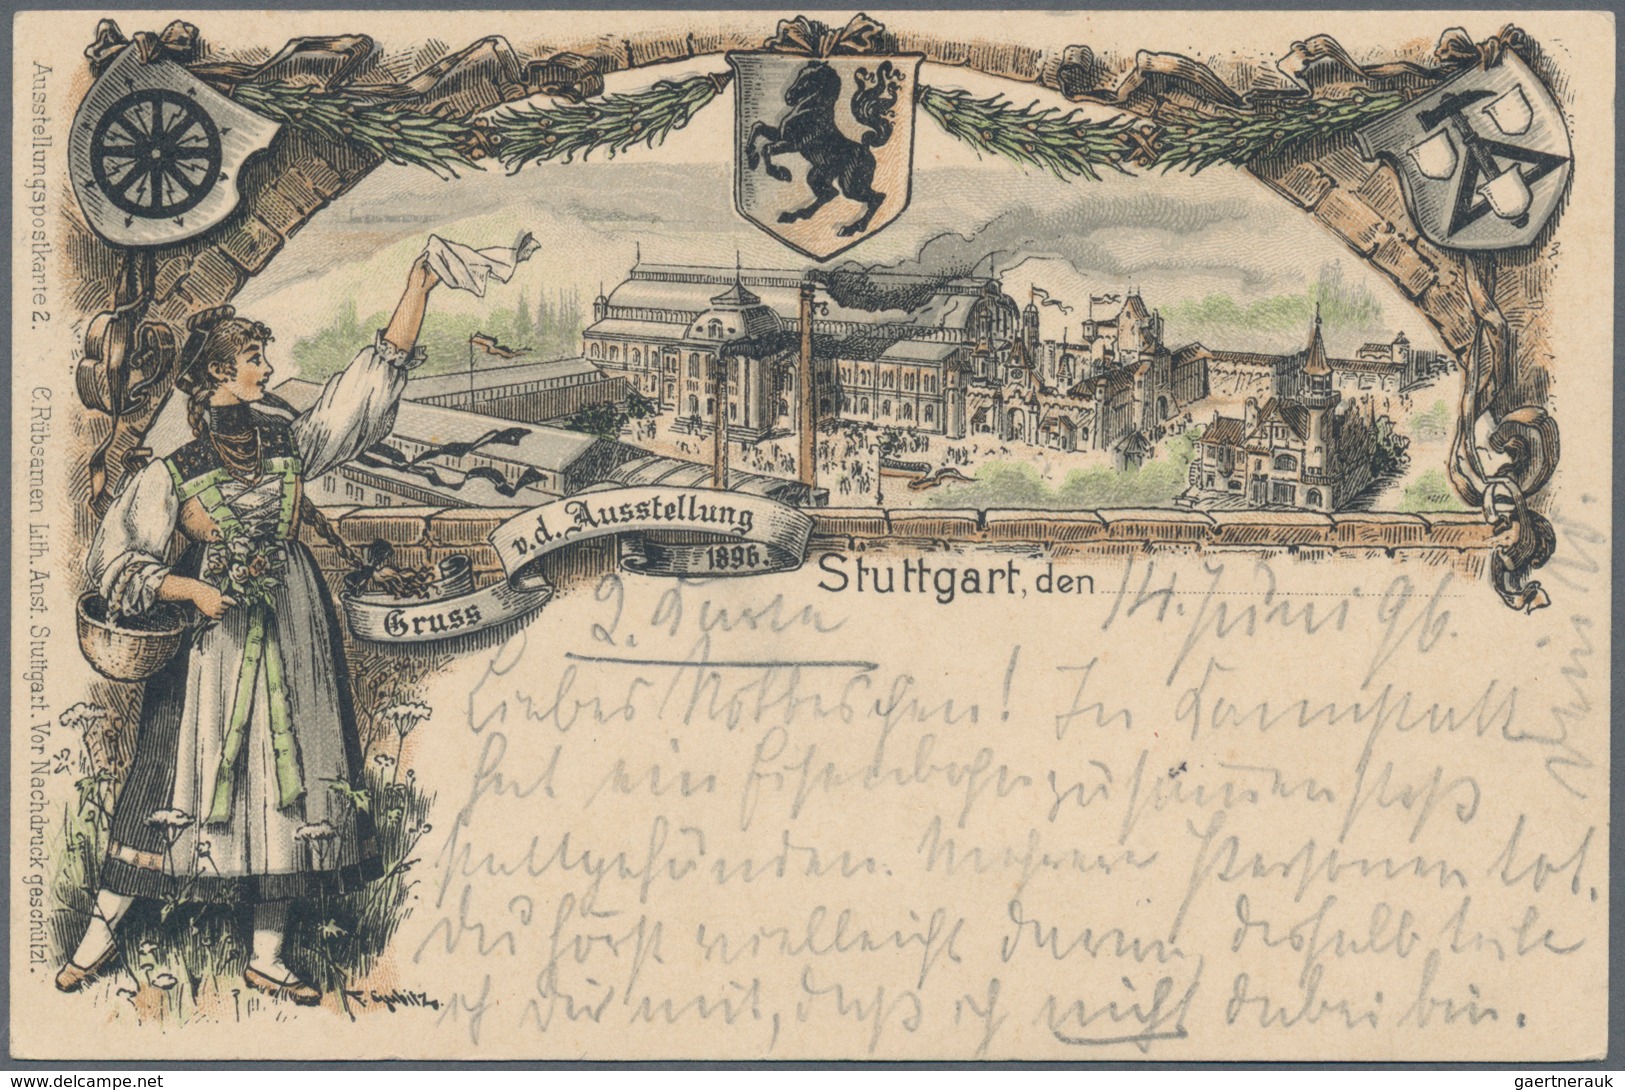 Ausstellungspostkarte 2. C. Rübsamen Lith. Anst. Stuttgart. Vor Nachdruck geschützt.
Gruss
v. d. Ausstellung
1896.
Stuttgart, den 14. Juni 96.
2. Karte
Liebes! In Cannstatt
hat ein Eisenbahnzusammenstoß
stattgefunden. Mehrere Personen tot.
Du hörst vielleicht davon, deshalb teile
ich Dir mit, daß ich nicht dabei bin.
Dein
F. Gubitz
gaertnerauk
www.delcampe.net